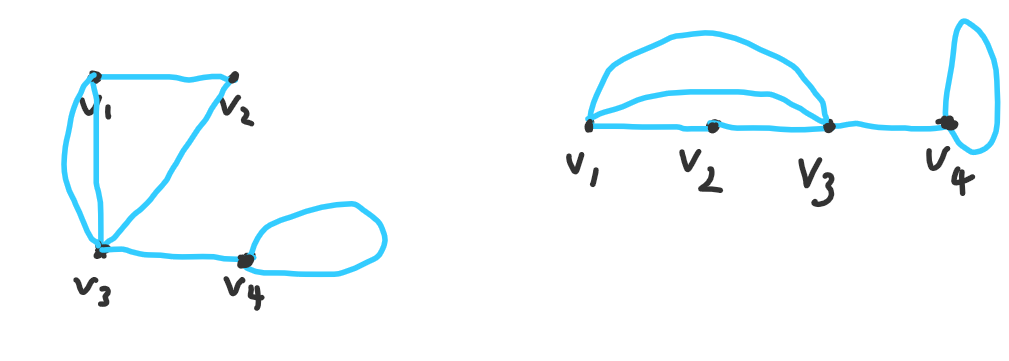 v1 v2
v3 v4
v1 v2 v3 v4